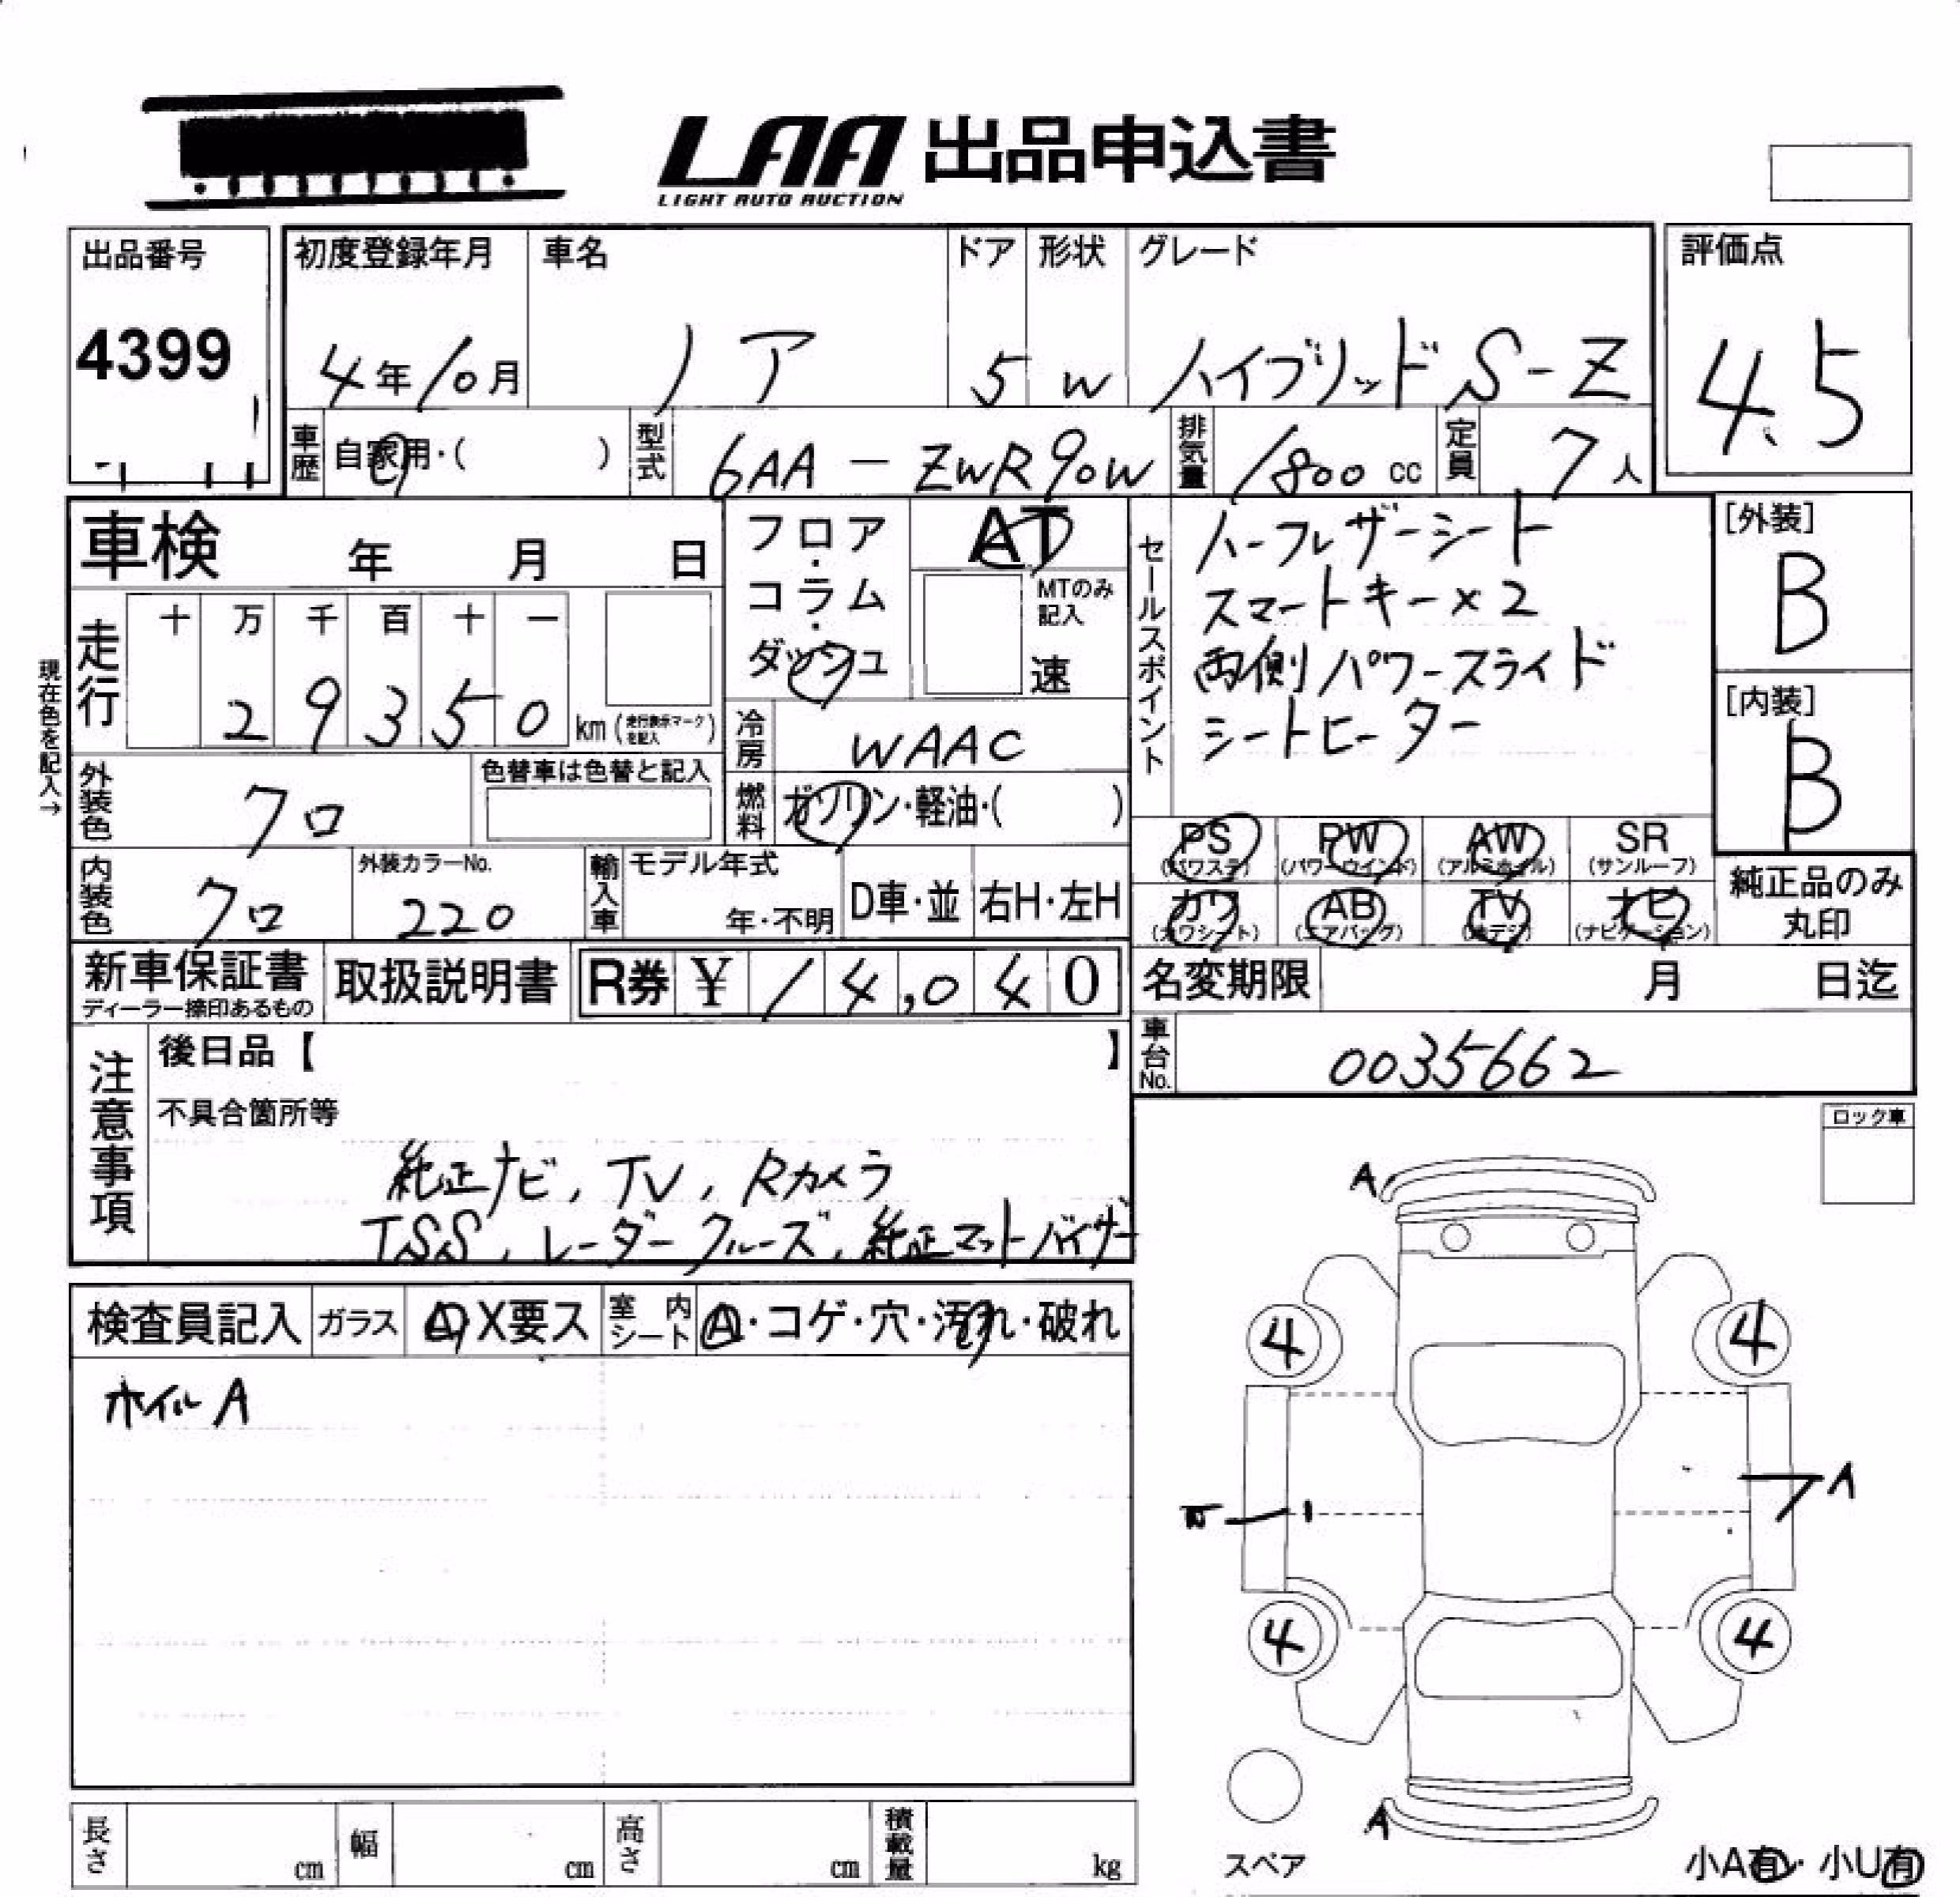 LAA 出品申込書
LIGHT AUTO AUCTION
出品番号
4399
初度登録年月
4年10月
車名
ノア
ドア
5
形状
W
グレード
ハイブリッド S-Z
評価点
4.5
車歴
自家用・( )
型式
6AA-ZWR90W
排気量
1800 cc
定員
7人
車検 年 月 日
フロア・コラム・ダッシュ
AT
MTのみ記入
速
セールスポイント
ハーフレザーシート
スマートキー×2
両側パワースライド
シートヒーター
[外装]
B
[内装]
B
現在色を記入→
走行
十 万 千 百 十 一
2 9 3 5 0 km (走行表示マークを記入)
冷房
WAAC
外装色
クロ
色替車は色替と記入
燃料
ガソリン・軽油・( )
PS (パワステ)
PW (パワーウインド)
AW (アルミホイル)
SR (サンルーフ)
カワ (カワシート)
AB (エアバッグ)
TV (地デジ)
ナビ (ナビゲーション)
純正品のみ丸印
内装色
クロ
外装カラーNo.
220
輸入車
モデル年式
年・不明
D車・並
右H・左H
新車保証書
ディーラー捺印あるもの
取扱説明書
R券 ¥ 14,040
名変期限 月 日迄
車台No.
0035662
注意事項
後日品【 】
不具合箇所等
純正ナビ, TV, Rカメラ
TSS, レーダークルーズ, 純正マットバイザー
ロック車
検査員記入
ガラス
A X要ス
室内シート
A・コゲ・穴・汚れ・破れ
ホイル A
A
4
4
A
4
4
A
スペア
小A有・小U有
長さ cm
幅 cm
高さ cm
積載量 kg